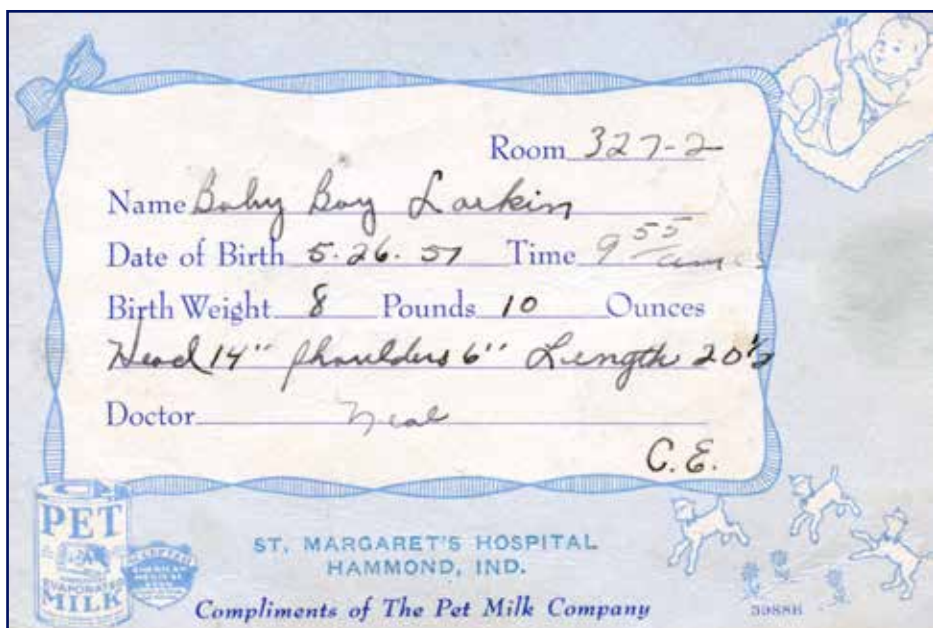 Room 327-2
Name Baby Boy Larkin
Date of Birth 5.26.57 Time 9 55
Birth Weight 8 Pounds 10 Ounces
Head 14" Shoulders 6" Length 20½
Doctor Neal
C.E.
PET
EVAPORATED
MILK
ST. MARGARET'S HOSPITAL
HAMMOND, IND.
Compliments of The Pet Milk Company